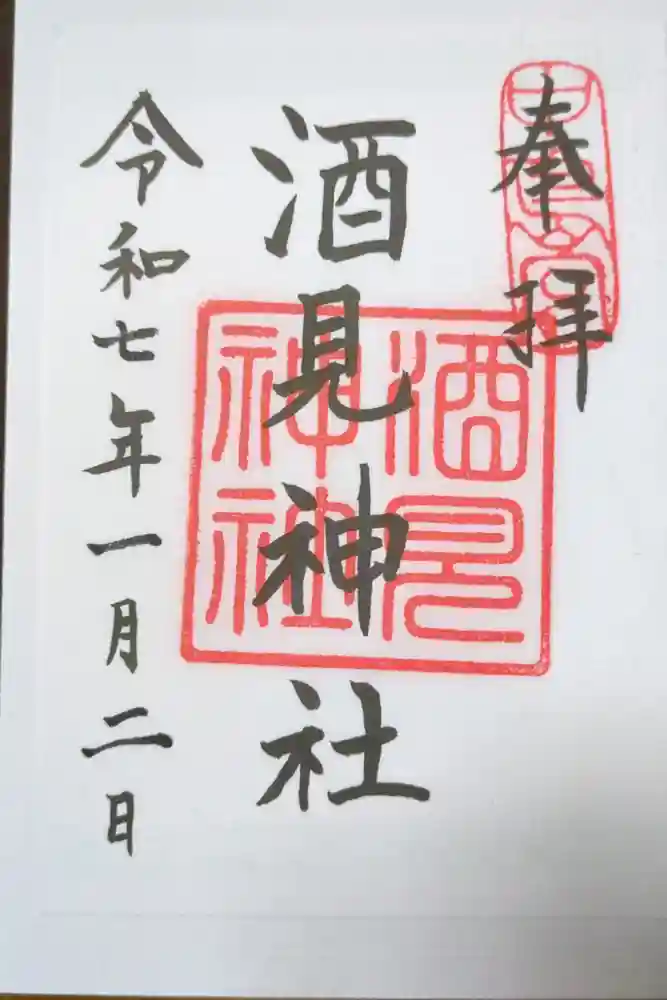 奉拝
酒見神社
酒見
神社
令和七年一月二日